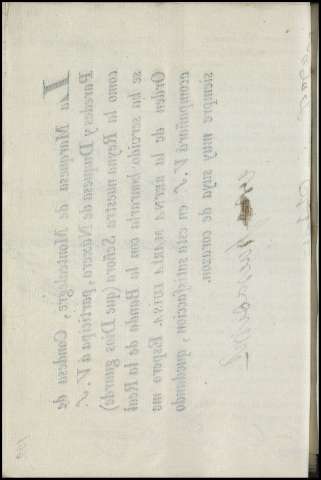 La Marquesa de Montealegre, Condesa de
Paredes, y Duquesa de Náxera, participa á V. S.
como la Reyna nuestra Señora (que Dios guarde)
se ha servido honrarla con la Banda de la Real
Orden de la REYNA MARIA LUISA. Espera me
acompañará V. S. en esta satisfaccion, quedando
siempre muy suya de corazon.